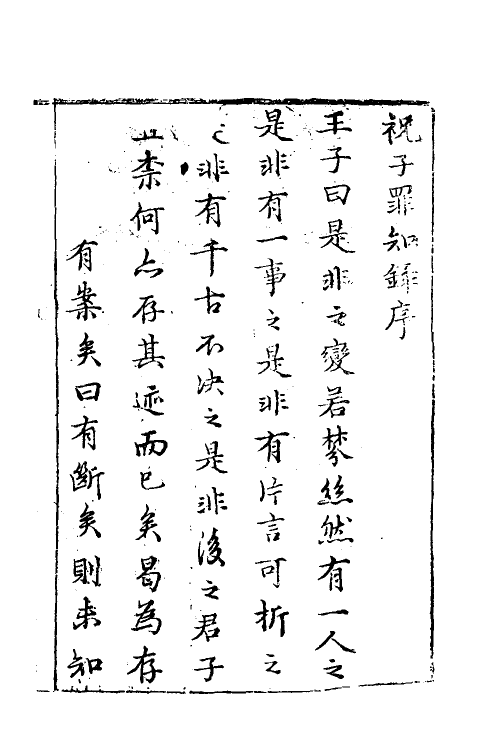 祝子罪知錄序
王子曰是非之變若棼絲然有一人之
是非有一事之是非有片言可折之
非有千古不决之是非後之君子
柰何亦存其迹而已矣曷為存
有案矣曰有斷矣則未知